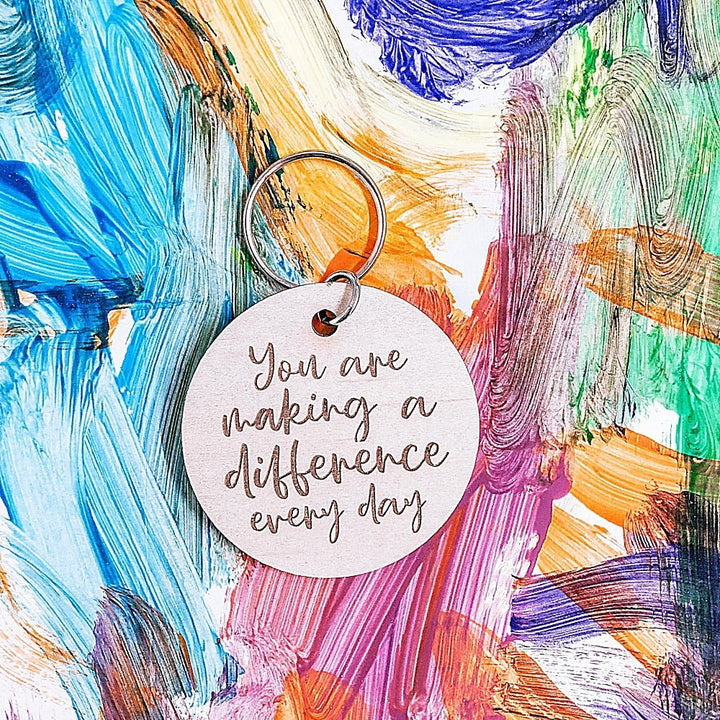 You are
making a
difference
every day